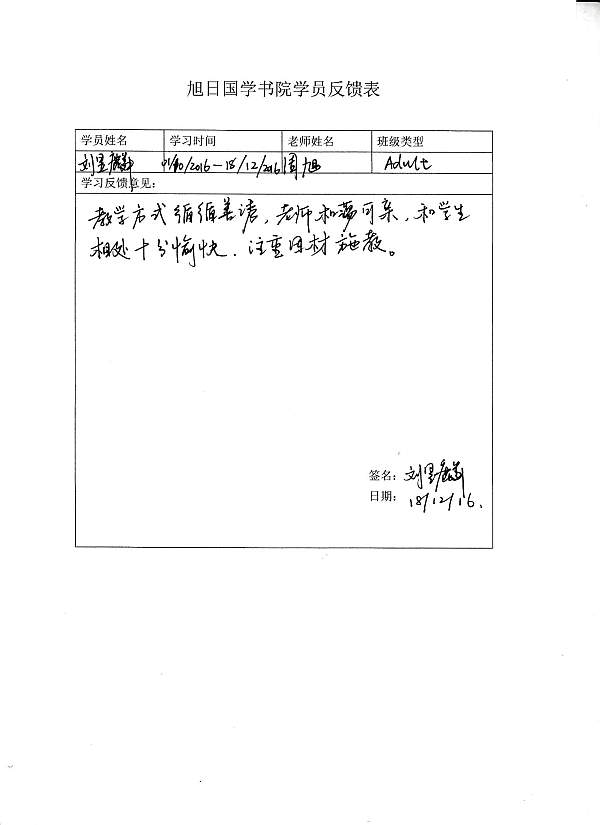 旭日国学书院学员反馈表
学员姓名 学习时间 老师姓名 班级类型
刘 01/10/2016-18/12/2016 周旭 Adult
学习反馈意见：
教学方式循循善诱，老师和蔼可亲，和学生
相处十分愉快．注重因材施教。
签名：刘
日期：18/12/16.